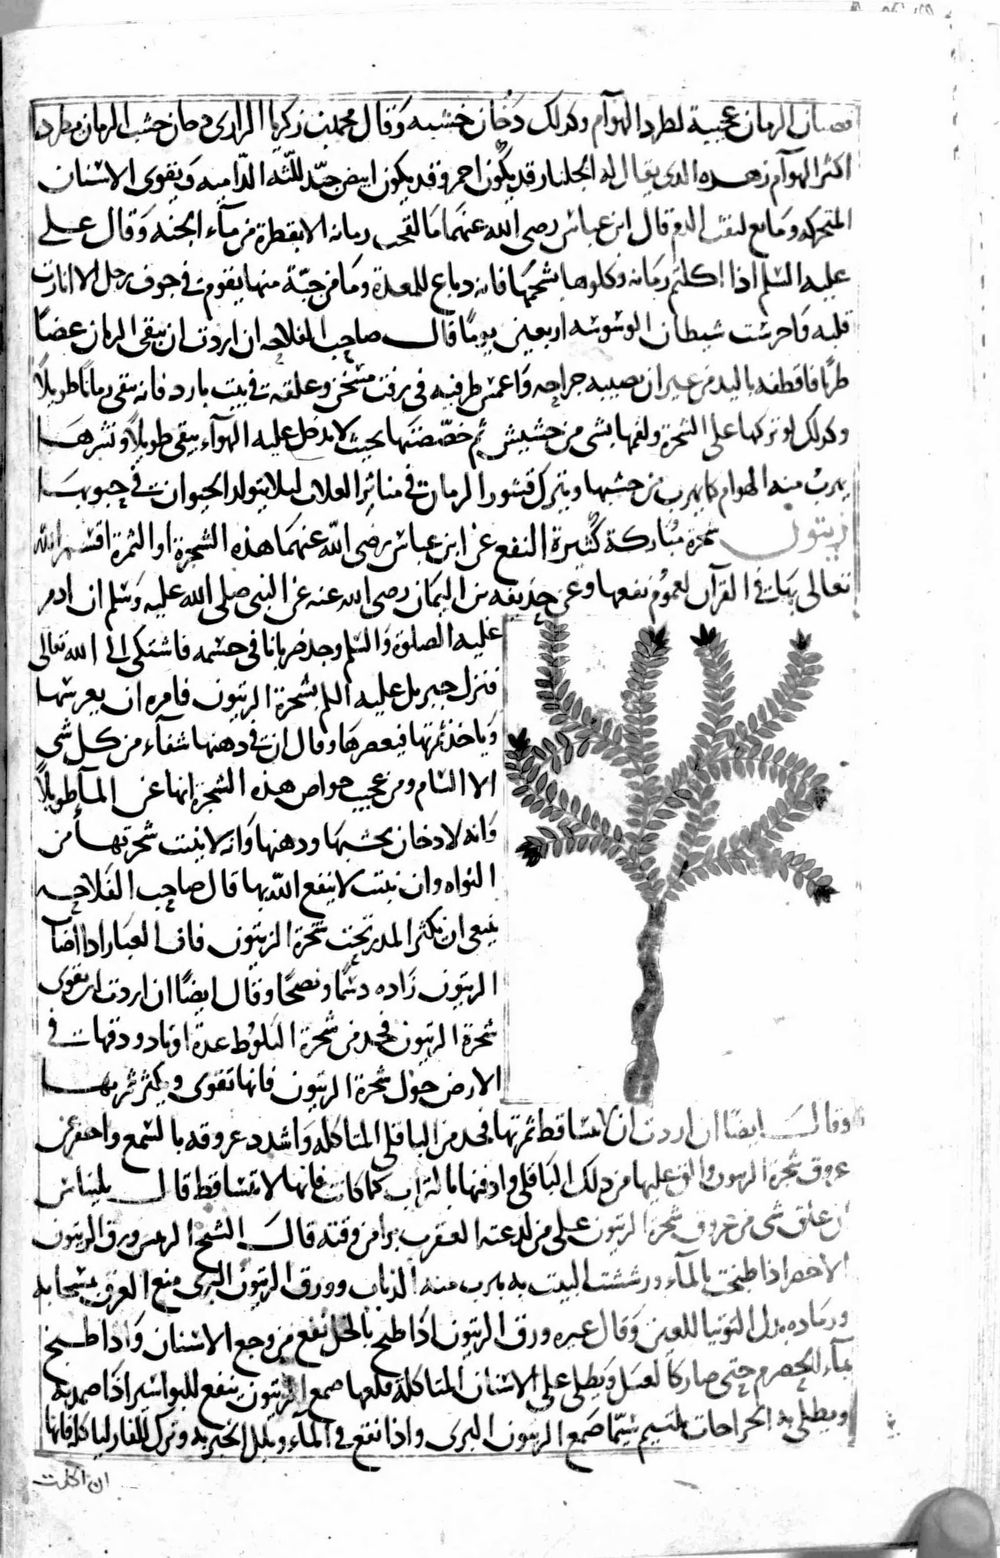 قضبان الرمان عجيبة لطرد الهوآم وكذلك دخان خشبه وقال محمد بن زكريا الرازى دخان خشب الرمان يطرد
اكثر الهوآم زهره الذى يقال له الجلنار قد يكون احمر وقد يكون ابيض جيد للثه الدامية ويقوى الاسنان
المتحركه ومانع لنفث الدم قال ابن عباس رضى الله عنهما ما لقحت رمانه الا بقطرة من مآء الجنه وقال على
عليه السلم اذا اكلتم رمانه فكلوها بشحمها فانه دباغ للمعدة وما من حبة منها يقوم فى جوف رجل الا انارت
قلبه واخرست شيطان الوسوسه اربعين يوما قال صاحب الفلاحه ان اردت ان يبقى الرمان غضا
طريا فاقطفه باليد من غير ان يصيبه جراحه واغمس طرفيه فى زفت مسخن وعلقه فى بيت بارد فانه يبقى زمانا طويلا
وكذلك لو تركها على الشجرة ولفها بشى من حشيش ثم جصصتها بحيث لا يدخل عليه الهوآء يبقى طويلا وقشرها
يهرب منه الهوام كما يهرب من خشبها ويترك قشور الرمان فى منابر الغلات ليلا يتولد الحيوان فى حبوبها
زيتون شجرة مباركة كثيرة النفع عن ابن عباس رضى الله عنهما هذه الشجرة او الثمرة اقسم الله
تعالى بها فى القرآن لعموم نفعها وعن حذيفه بن اليمان رضى الله عنه عن النبى صلى الله عليه وسلم ان ادم
عليه الصلوة والسلم وجد ضربانا فى جسمه فاشتكى الى الله تعالى
فنزل جبريل عليه السلم بشجرة الزيتون فامره ان يغرسها
وياخذ ثمرتها فيعصرها وقال ان فى دهنها شفآء من كل شى
الا السام ومن عجيب خواص هذه الشجرة انها عن المآء طويلا
وانه لا دخان لخشبها ودهنها وانه لا ينبت شجرتها من
النواه وان نبتت لا ينفع الله بها قال صاحب الفلاحه
ينبغى ان يكثر المدر تحت شجرة الزيتون فان الغبار اذا اصاب
الزيتون زاده دسما ونضجا وقال ايضا ان اردت ان تقوى
شجرة الزيتون فخذ من شجرة البلوط عدة اوتاد ودقها فى
الارض حول شجرة الزيتون فانها تقوى ويكثر ثمرها
وقال ايضا ان اردت ان لا يتساقط ثمرتها فخذ من الباقلى المتاكله واشدد عروقه بالشمع واحفر عن
عروق شجرة الزيتون والق عليها من ذلك الباقلى وادفنها بالتراب كما كانت فانها لا يتساقط قال بليناس
ان علق شى من عروق شجرة الزيتون على من لدغته العقرب برا من وقته قال الشيخ الرئيس ورق الزيتون
الاخضر اذا طبخ بالمآء ورششت البيت به يهرب منه الذباب وورق الزيتون البرى منع العرق مسحا به
ورماده بدل التوتيا للعين وقال غيره ورق الزيتون اذا طبخ بالخل نفع من وجع الاسنان واذا طبخ
بمآء الحصرم حتى صار كالعسل ويطلى على الاسنان المتاكلة قلعها صمغ الزيتون ينفع للبواسير اذا ضمد به
ويطلى به الجراحات سيما صمغ الزيتون البرى واذا نقع فى المآء وبلل الخبز به وترك للفار لياكله فانها
ان اكلت